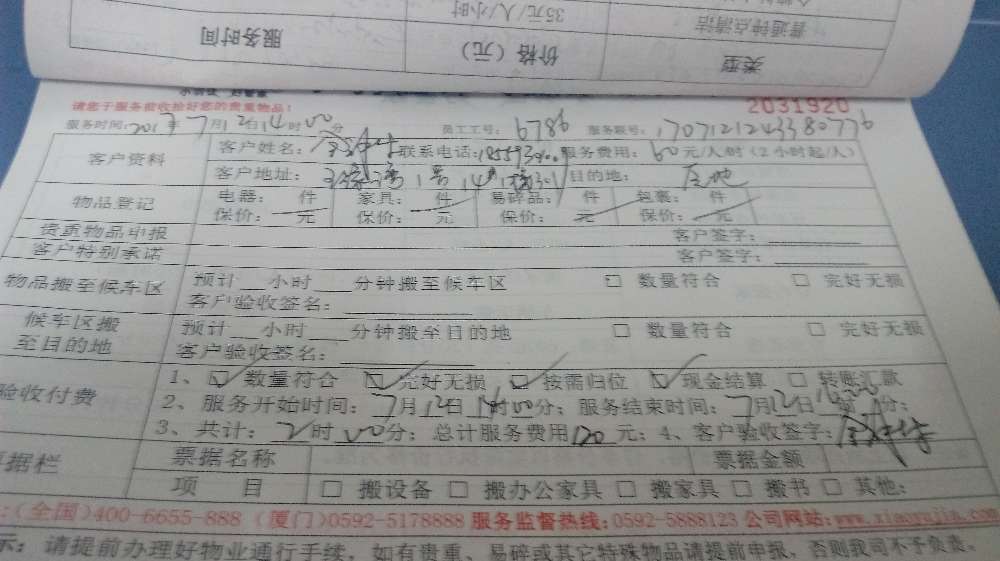 服务时间
价格（元）
类型
35元/人/小时
普通钟点清洁
请您于服务前收拾好您的贵重物品！
2031920
服务时间：2017年7月12日14时00分 员工工号：6786 服务联号：1707121243380776
客户资料
客户姓名： 联系电话： 服务费用：60元/人/时（2小时起/人）
客户地址： 1号14 目的地：
物品登记
电器： 件 家具： 件 易碎品： 件 包裹： 件
保价： 元 保价： 元 保价： 元 保价： 元
贵重物品申报 客户签字：
客户特别承诺 客户签字：
物品搬至候车区 预计__小时____分钟搬至候车区 □ 数量符合 □ 完好无损
客户验收签名：
候车区搬至目的地 预计__小时____分钟搬至目的地 □ 数量符合 □ 完好无损
客户验收签名：
验收付费
1、☑ 数量符合 ☑ 完好无损 ☑ 按需归位 ☑ 现金结算 □ 转账汇款
2、服务开始时间：7月12日14时00分；服务结束时间：7月12日16 00分；
3、共计：2时00分；总计服务费用120元；4、客户验收签字：
据栏
票据名称 票据金额
项 目 □ 搬设备 □ 搬办公家具 □ 搬家具 □ 搬书 □ 其他：
：（全国）400-6655-888（厦门）0592-5178888 服务监督热线：0592-5888123 公司网站：www.xiaoyujia.com
示：请提前办理好物业通行手续，如有贵重、易碎或其它特殊物品请提前申报，否则我司不予负责。